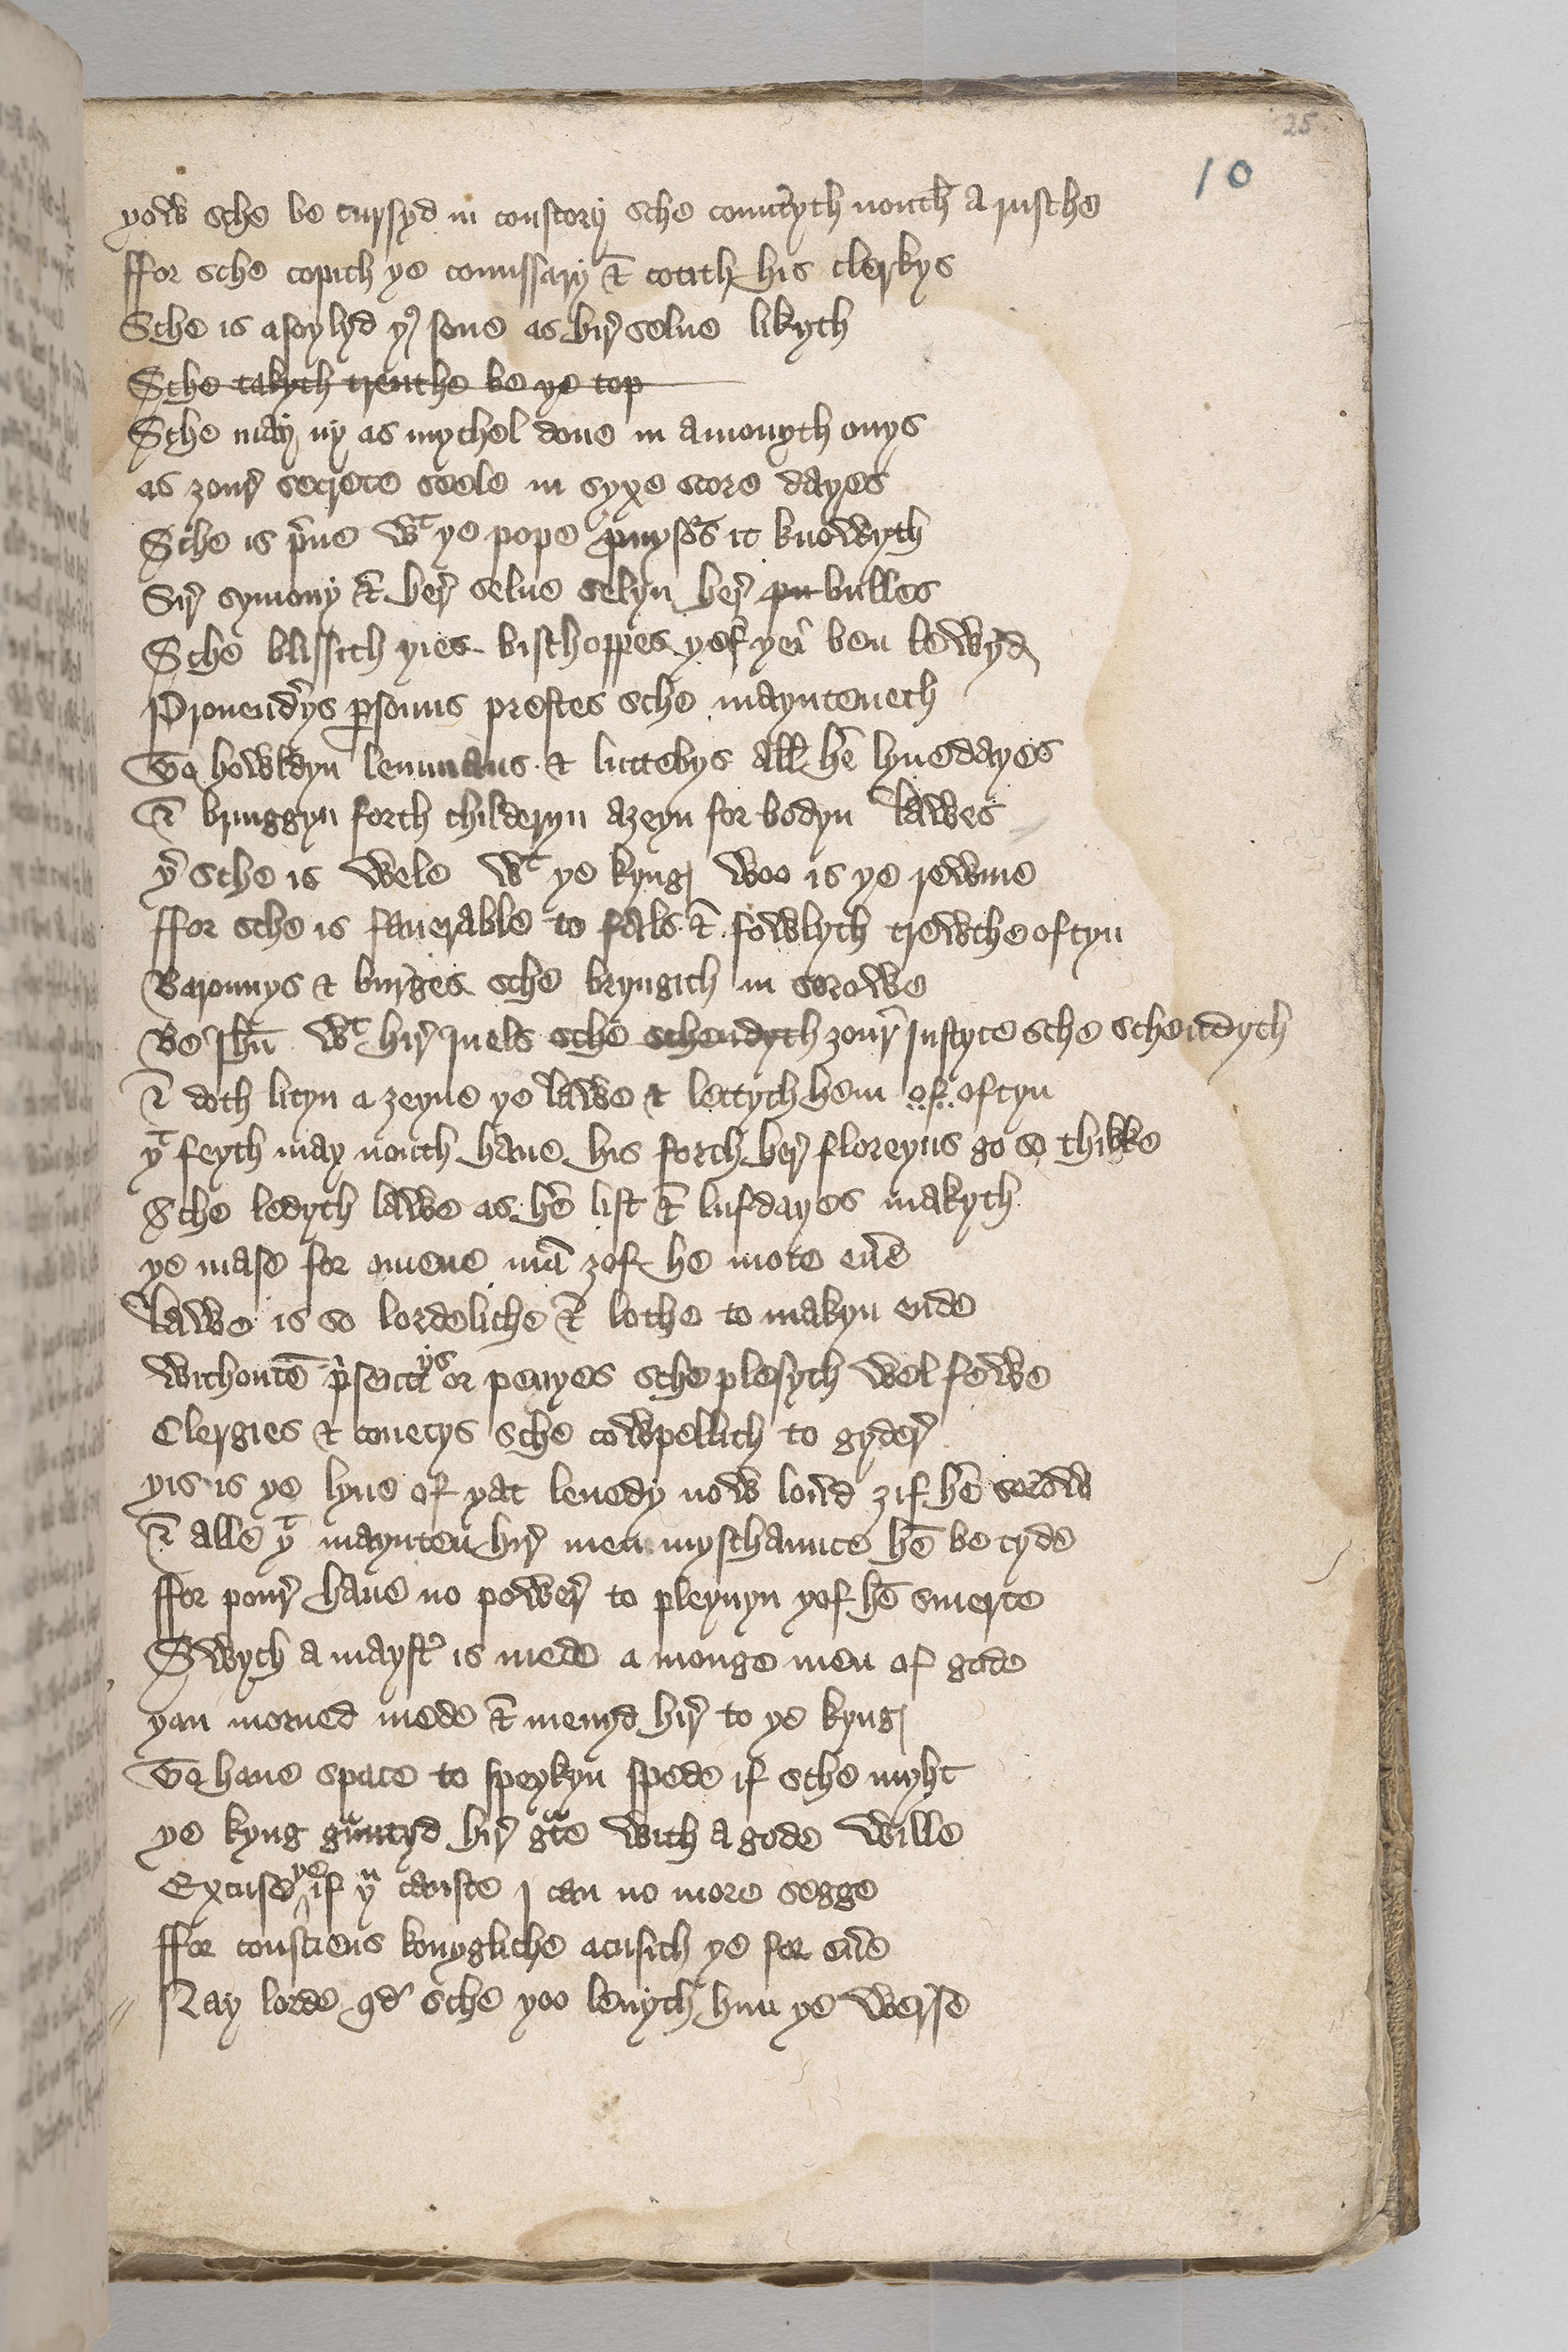 25
10
yow sche be cursyd in constorij sche countryth nouth a rusche
ffor sche copith ye comissarij & cotith his clerkys
Sche is asoylyd ys sone as hir selue likyth
Sche takyth treuthe be ye top
Sche may ny as mychel done in a monyth onys
as zour secrete seele in syxe score dayes
Sche is prue wt ye pope prouysors it knowyth
Sir symony & her selue selyn her pu bulles
Sche blissith yies bischoppes yef yei ben lewyd
Prouendrys personns prestes sche maynteneth
To howldyn lemmans & luttebys all her lyuesdayes
& bringgyn forth childeryn azeyn forbodyn lawes
yer sche is wele wt ye kyng woo is ye rewme
ffor sche is fauerable to fals & fowlyth trewthe oftyn
Baronnys & burges sche bryngith in sorowe
Be Ihu wt hir Iuels sche schendyth zour Iustyce sche schendyth
& doth lityn a zeyne ye lawe & lettyth hem of oftyn
yt feyth may nouth haue his forth her floreyns go so thikke
Sche ledyth lawe as her list & lufdayes makyth
ye mase for a mene man zof he mote euer
lawe is so lordeliche & lothe to makyn ende
withouten presentys or penyes sche plesyth wel fewe
Clergies & couetys sche cowpellith to gyder
yis is ye lyue of yat leuedy now lord zif her sorow
& alle yt maynten hir men myschaunce hem be tyde
ffor pour haue no power to pleynyn yof hem smerte
Swych a mayster is mede a monge men of gode
yan morned mede & menyd hir to ye kyng
To haue space to speykyn spede if sche myht
ye kyng grauntyd hir grace with a gode wille
Excuse ye if yu canste I can no more segge
ffor consciens konygliche acusith ye for euer
Nay lorde qd sche yoo leuyth him ye werse